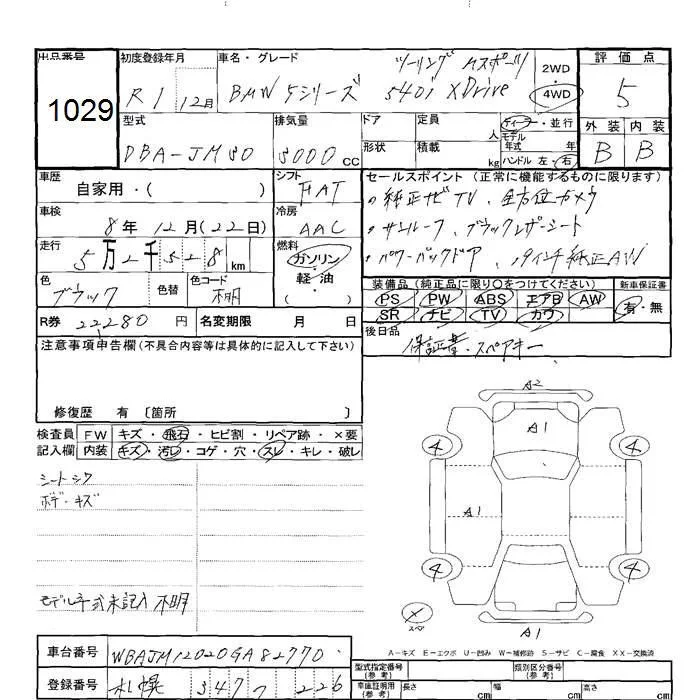 出品番号 1029
初度登録年月 R1 12月
車名・グレード BMW 5シリーズ ツーリング Mスポーツ 540i XDrive
2WD
4WD
評価点 5
型式 DBA-JM30
排気量 3000 CC
ドア 定員 人
形状 積載 kg
ディーラー・並行
モデル年式 年
ハンドル 左・右
外装 内装
B B
車歴 自家用・( )
シフト FAT
セールスポイント (正常に機能するものに限ります)
・純正ナビ TV、全方位カメラ
車検 8年 12月(22日)
冷房 AAC
・サンルーフ、ブラックレザーシート
走行 5万2千528 km
燃料 ガソリン・軽・油 ( )
・パワーバックドア、19インチ純正AW
色 ブラック 色替 色コード 不明
装備品 (純正品に限り〇をつけてください) 新車保証書
PS PW ABS エアB AW 有・無
SR ナビ TV カワ
R券 22280 円 名変期限 月 日
後日品 保証書・スペアキー
注意事項申告欄 (不具合内容等は具体的に記入して下さい)
修復歴 有 〔箇所 〕
検査員 FW キズ・飛石・ヒビ割・リペア跡・×要
記入欄 内装 キズ・汚レ・コゲ・穴・スレ・キレ・破レ
シートシワ
ボデーキズ
モデル年式未記入 不明
A2
A1
4 4
A1 A1
4 4
× スペア
A1
A-キズ E-エクボ U-凹み W-補修跡 S-サビ C-腐食 XX-交換済
車台番号 WBAJM12020GA82770
登録番号 札幌 347 226
型式指定番号 (参考) 類別区分番号 (参考)
車庫証明用 (参考) 長さ cm 幅 cm 高さ cm